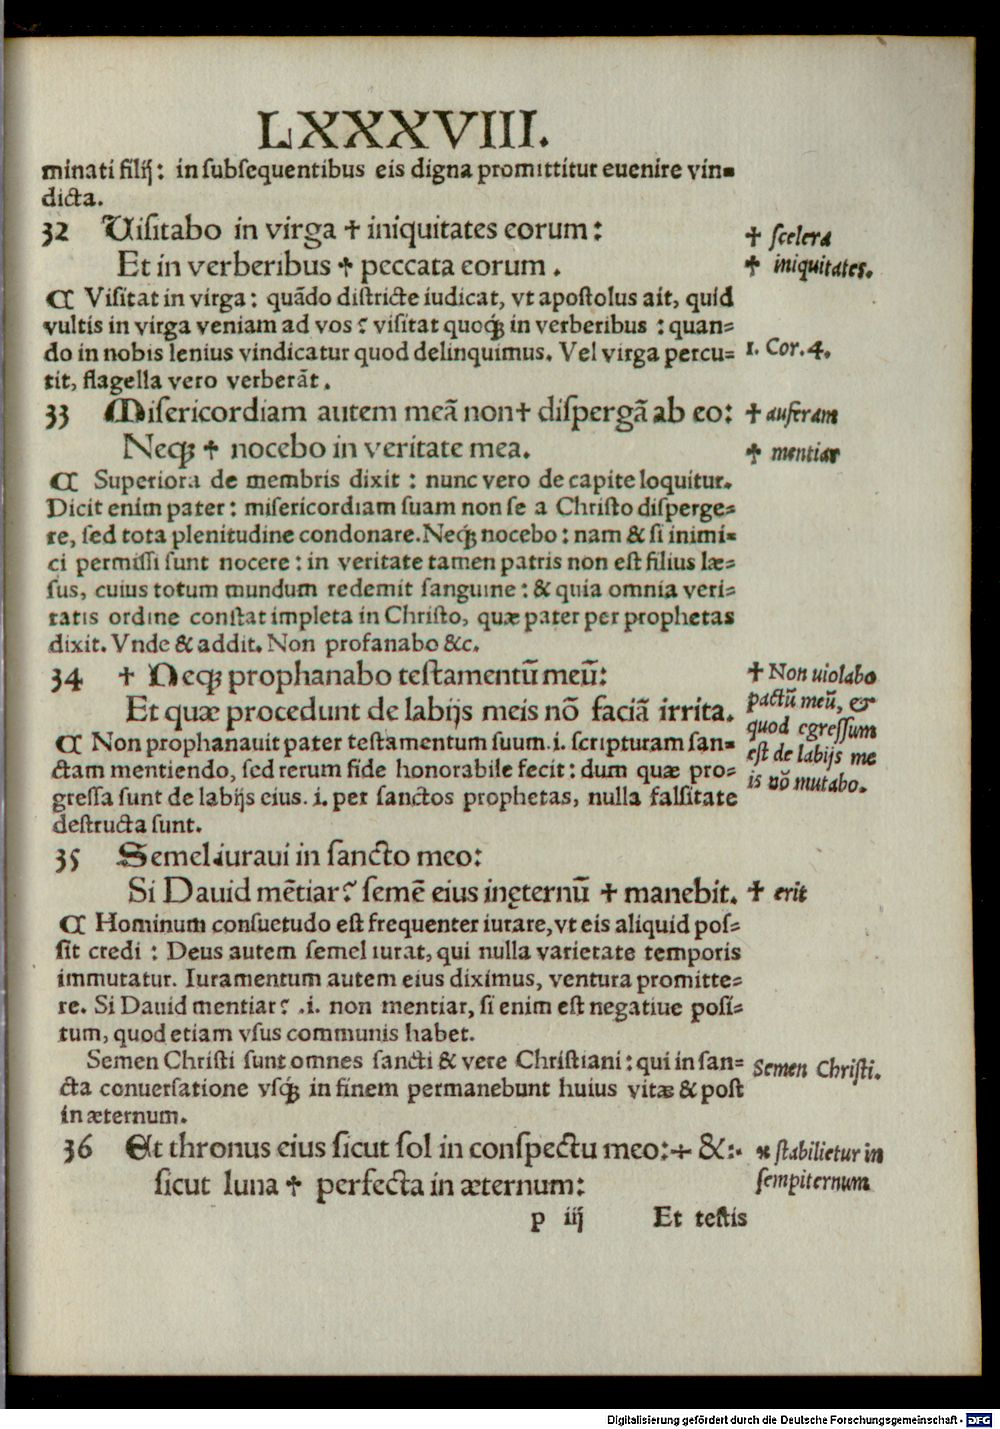 LXXXVIII.
minati filij: in subsequentibus eis digna promittitur euenire vin-
dicta.
32 Uisitabo in virga ✝ iniquitates eorum:
✝ scelera
Et in verberibus ✝ peccata eorum.
✝ iniquitates.
¶ Visitat in virga: quãdo districte iudicat, vt apostolus ait, quid
vultis in virga veniam ad vos? visitat quoq; in verberibus: quan-
do in nobis lenius vindicatur quod delinquimus. Vel virga percu-
1. Cor. 4.
tit, flagella vero verberãt.
33 Misericordiam autem meã non ✝ dispergã ab eo:
✝ auferam
Neq; ✝ nocebo in veritate mea.
✝ mentiar
¶ Superiora de membris dixit: nunc vero de capite loquitur.
Dicit enim pater: misericordiam suam non se a Christo disperge-
re, sed tota plenitudine condonare. Neq; nocebo: nam & si inimi-
ci permissi sunt nocere: in veritate tamen patris non est filius læ-
sus, cuius totum mundum redemit sanguine: & quia omnia veri-
tatis ordine constat impleta in Christo, quæ pater per prophetas
dixit. Vnde & addit. Non profanabo &c.
34 ✝ Neq; prophanabo testamentũ meũ:
Et quæ procedunt de labijs meis nõ faciã irrita.
✝ Non uiolabo
pactũ meũ, &
quod egressum
est de labijs me
is nõ mutabo.
¶ Non prophanauit pater testamentum suum .i. scripturam san-
ctam mentiendo, sed rerum fide honorabile fecit: dum quæ pro-
gressa sunt de labijs eius .i. per sanctos prophetas, nulla falsitate
destructa sunt.
35 Semel iuraui in sancto meo:
Si Dauid mẽtiar? semẽ eius inęternũ ✝ manebit.
✝ erit
¶ Hominum consuetudo est frequenter iurare, vt eis aliquid pos-
sit credi: Deus autem semel iurat, qui nulla varietate temporis
immutatur. Iuramentum autem eius diximus, ventura promitte-
re. Si Dauid mentiar? .i. non mentiar, si enim est negatiue posi-
tum, quod etiam vsus communis habet.
Semen Christi sunt omnes sancti & vere Christiani: qui in san-
Semen Christi.
cta conuersatione vsq; in finem permanebunt huius vitæ & post
in æternum.
36 Et thronus eius sicut sol in conspectu meo: ✝ &:
sicut luna ✝ perfecta in æternum:
✝ stabilietur in
sempiternum
p iij Et testis
Digitalisierung gefördert durch die Deutsche Forschungsgemeinschaft - DFG